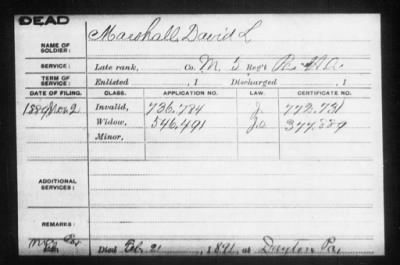 DEAD
NAME OF SOLDIER: Marshall, David L
SERVICE: Late rank, Co. M, 5 Reg't Pa. H.A.
TERM OF SERVICE: Enlisted , 1 Discharged , 1
DATE OF FILING. CLASS. APPLICATION NO. LAW. CERTIFICATE NO.
1889 Nov 2 Invalid, 736.784 772.731
Widow, 546.491 377.889
Minor,
ADDITIONAL SERVICES:
REMARKS:
Died Feb. 21, 1891, at Dayton Pa